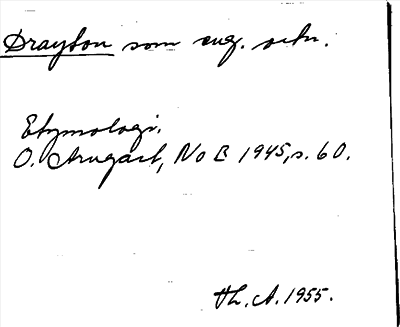 Drayton som eng. ortn.
Etymologi.
O. Arngart, No B 1945, s. 60.
Th. A. 1955.